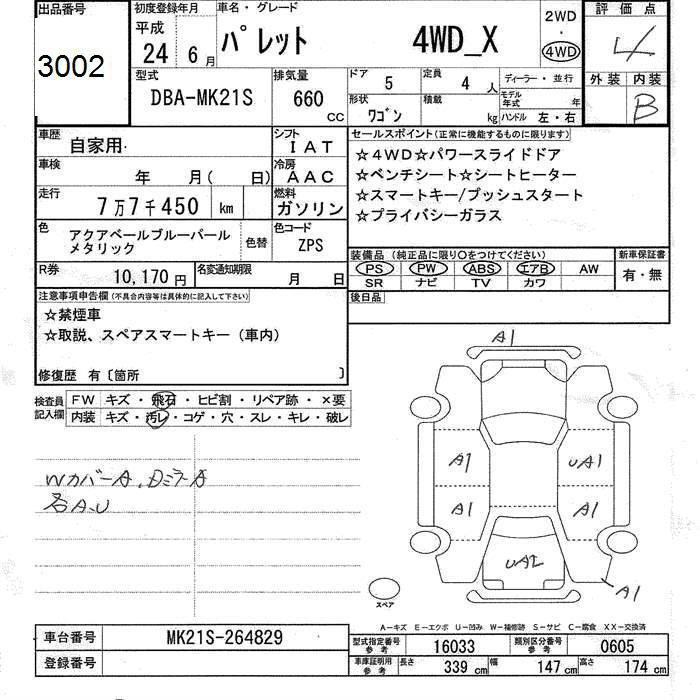 出品番号
3002
初度登録年月
平成
24 6月
車名・グレード
パレット 4WD_X
2WD
・
4WD
評価点
4
外装 内装
B
型式
DBA-MK21S
排気量
660
CC
ドア 5
定員 4 人
形状 ワゴン
積載 kg
ディーラー・並行
モデル年式 年
ハンドル 左・右
車歴 自家用・
シフト IAT
車検 年 月( 日)
冷房 AAC
走行 7万7千450 km
燃料 ガソリン
色 アクアベールブルーパール
メタリック
色替
色コード ZPS
R券 10,170円
名変通知期限 月 日
セールスポイント(正常に機能するものに限ります)
☆4WD☆パワースライドドア
☆ベンチシート☆シートヒーター
☆スマートキー/プッシュスタート
☆プライバシーガラス
装備品(純正品に限り○をつけてください)
PS PW ABS エアB AW
SR ナビ TV カワ
新車保証書
有・無
後日品
注意事項申告欄(不具合内容等は具体的に記入して下さい)
☆禁煙車
☆取説、スペアスマートキー(車内)
修復歴 有〔箇所 〕
検査員
記入欄
FW キズ・飛石・ヒビ割・リペア跡・×要
内装 キズ・汚レ・コゲ・穴・スレ・キレ・破レ
Wカバー A、Dミラー A
各A、U
A1
A1 UA1
A1 A1
UA2
A1
スペア
A-キズ E-エクボ U-凹み W-補修跡 S-サビ C-腐食 XX-交換済
車台番号 MK21S-264829
登録番号
型式指定番号
参考
16033
類別区分番号
参考
0605
車庫証明用
参考
長さ 339 cm 幅 147 cm 高さ 174 cm